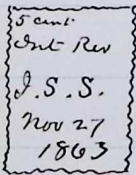 5 cent
Int Rev
J.S.S.
Nov 27
1863